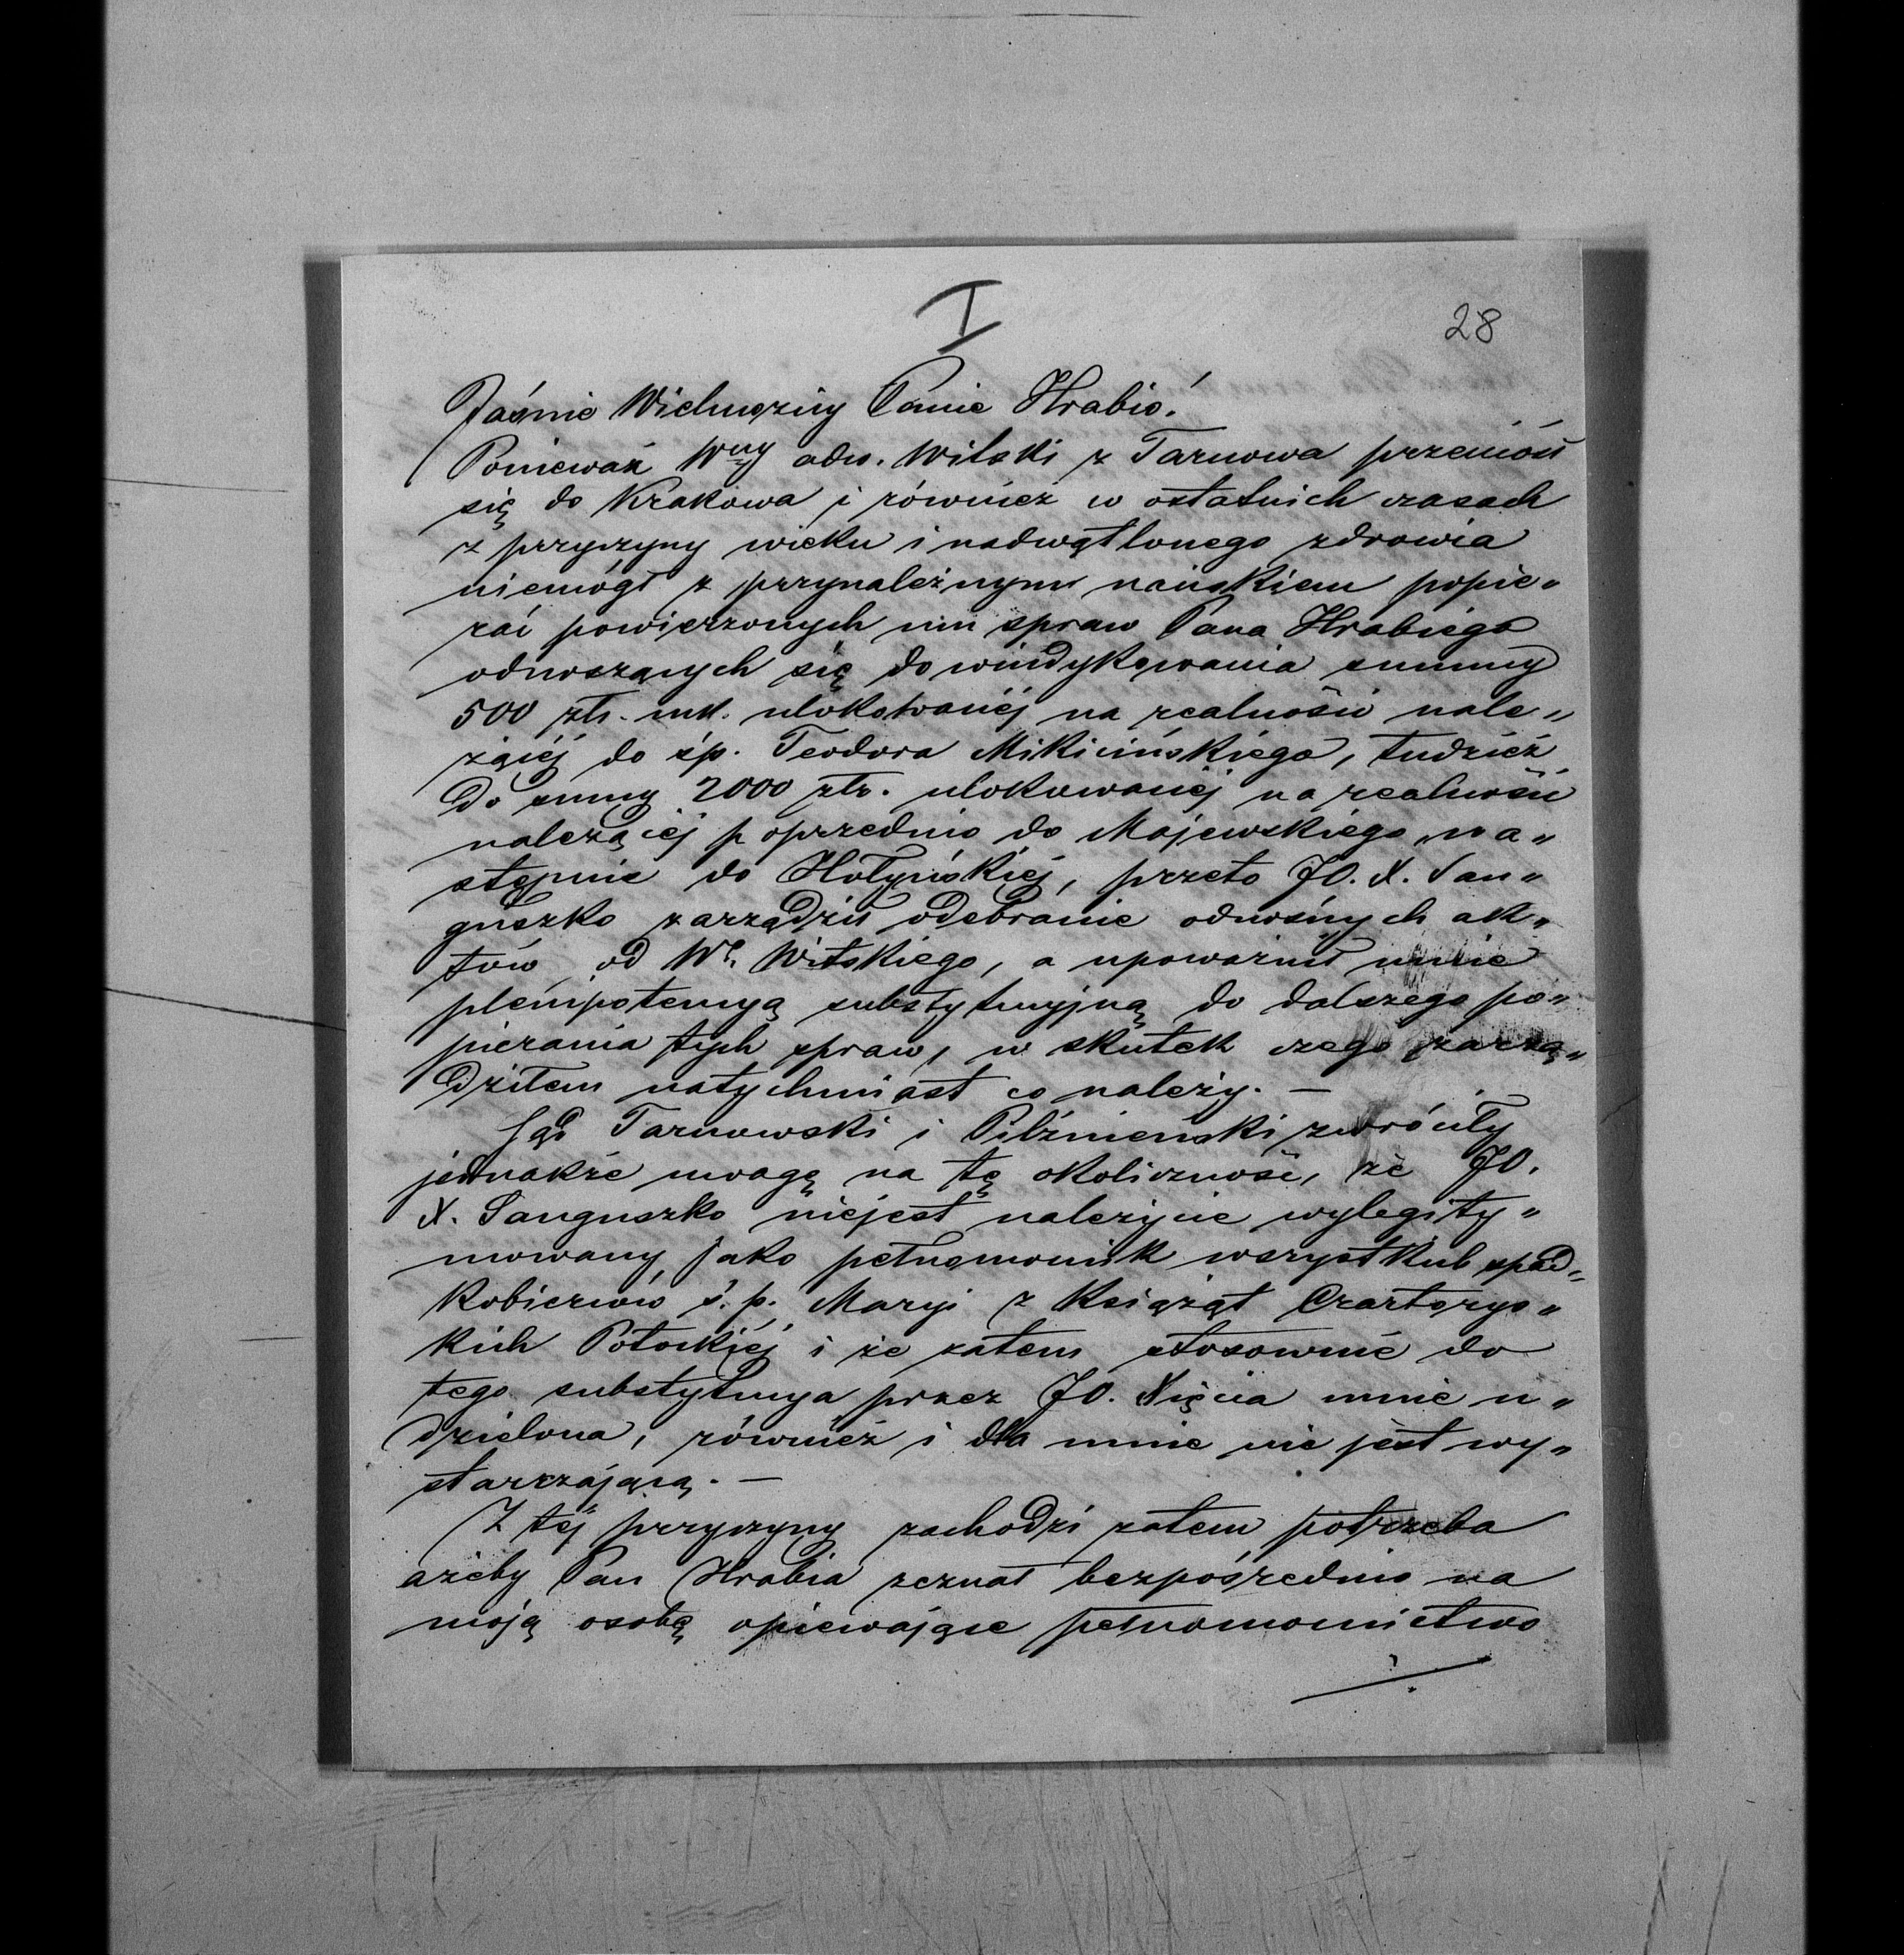 I
28
Jaśnie Wielmożny Panie Hrabio!
Ponieważ Wny adw. Witski z Tarnowa przeniósł
się do Krakowa i również w ostatnich czasach
z przyczyny wieku i nadwątlonego zdrowia
niemógł z przynależnym naciskiem popie„
rać powierzonych mu spraw Pana Hrabiego
odnoszących się do windykowania summy
500 złr. mk. ulokowanéj na realności nale„
żącéj do śp. Teodora Mikicińskiego, tudzież
do sumy 2000 złr. ulokowanéj na realności
należącéj poprzednio do Majewskiego, na„
stępnie do Hołyńskiéj, przeto JO. X. San„
guszko zarządził odebranie odnośnych ak„
tów od Wo. Witskiego, a upoważnił mnie
plenipotencyą substytucyjną do dalszego po„
pierania tych spraw, w skutek czego zarzą„
dziłem natychmiast co należy. —
Sąd Tarnowski i Pilźnieński zwróciły
jednakże uwagę na tę okoliczność, że JO.
X. Sanguszko niejest należycie wylegity„
mowany, jako pełnomocnik wszystkich spad„
kobierców ś. p. Maryi z Książąt Czartorys„
kich Potockiéj i że zatem stosownie do
tego substytucya przez JO. Xięcia mnie u„
dzielona, również i dla mnie nie jest wy„
starczającą. —
Z téj przyczyny zachodzi zatem potrzeba
ażeby Pan Hrabia zeznał bezpośrednio na
moją osobę opiewające pełnomocnictwo
./.